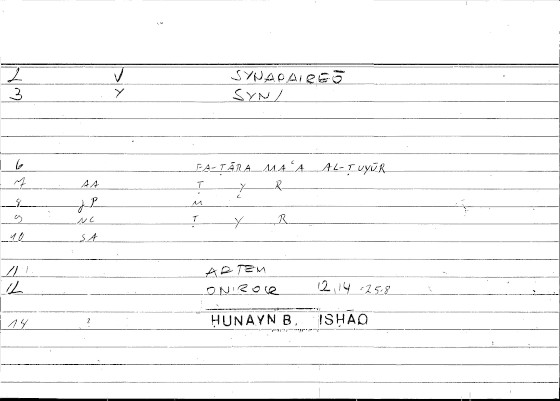 2 V SYNAPAIREŌ
3 Y SYN/
6 FA-ṬĀRA MAʿA AL-ṬUYŪR
7 AA Ṭ Y R
8 JP M ʿ
9 NC Ṭ Y R
10 SA
11 ARTEM
12 ONIROC 12,14 :25.8
14 HUNAYN B. ISHĀQ